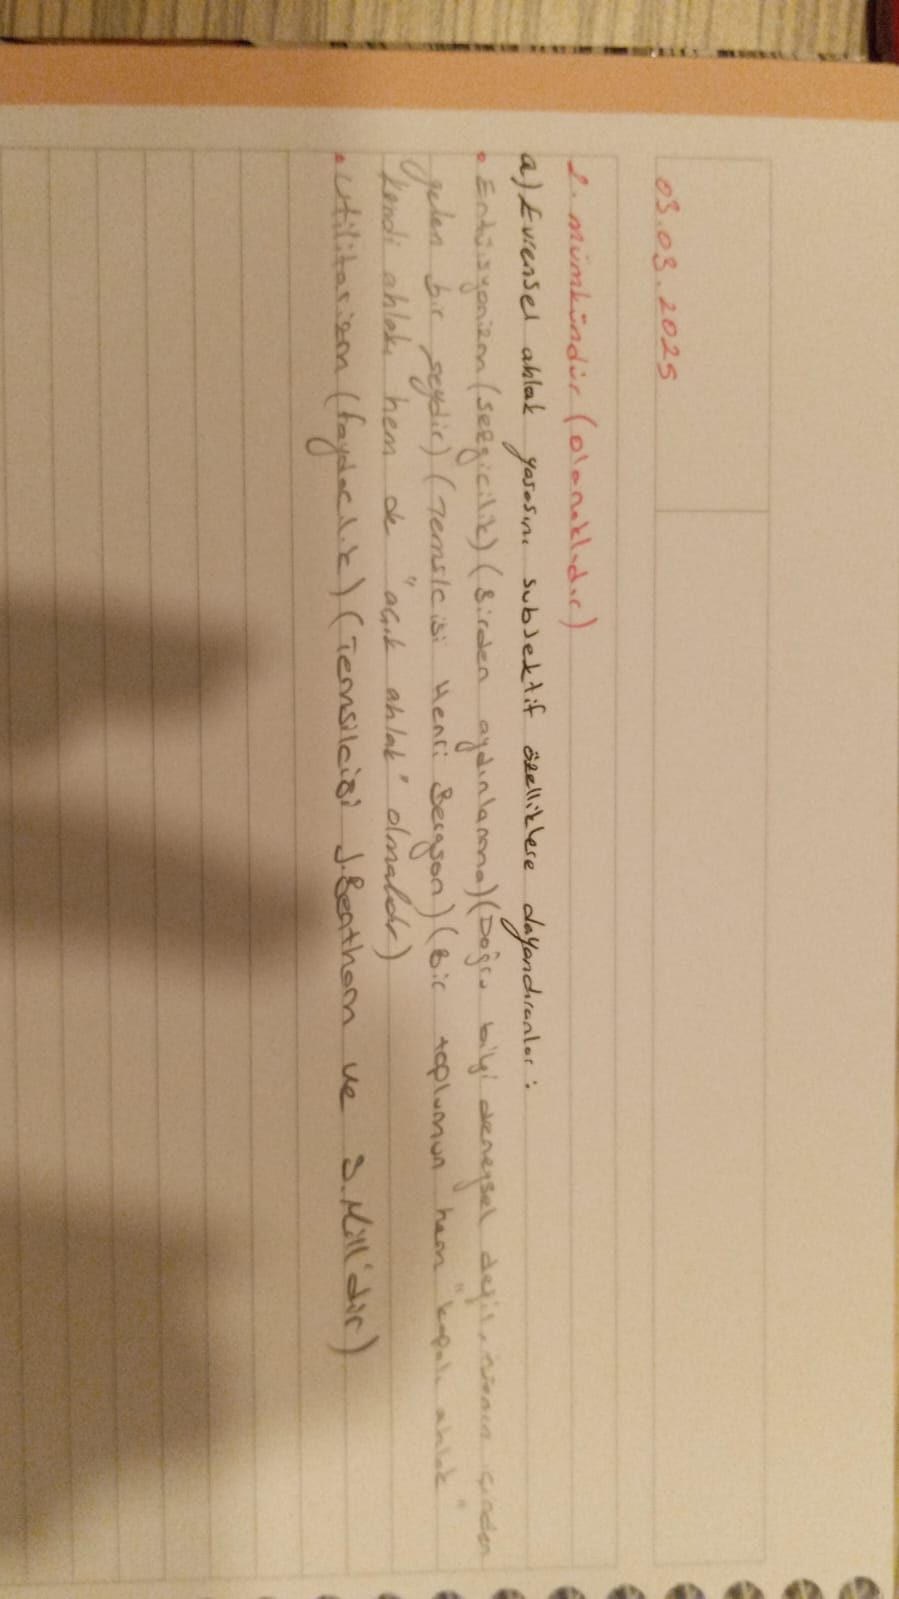 03.03.2025
2. mümkündür (olanaklıdır)
a) Evrensel ahlak yasasını subjektif özelliklere dayandıranlar:
• Entüisyonizm (sezgicilik) (Birden aydınlanma) (Doğru bilgi deneysel değil, içinden
gelen bir şeydir) (Temsilcisi Henri Bergson) (Bir toplumun hem "kapalı ahlak"
kendi ahlakı hem de "açık ahlak" olmalıdır)
• Utilitarizm (faydacılık) (Temsilcisi J.Bentham ve S.Mill'dir)